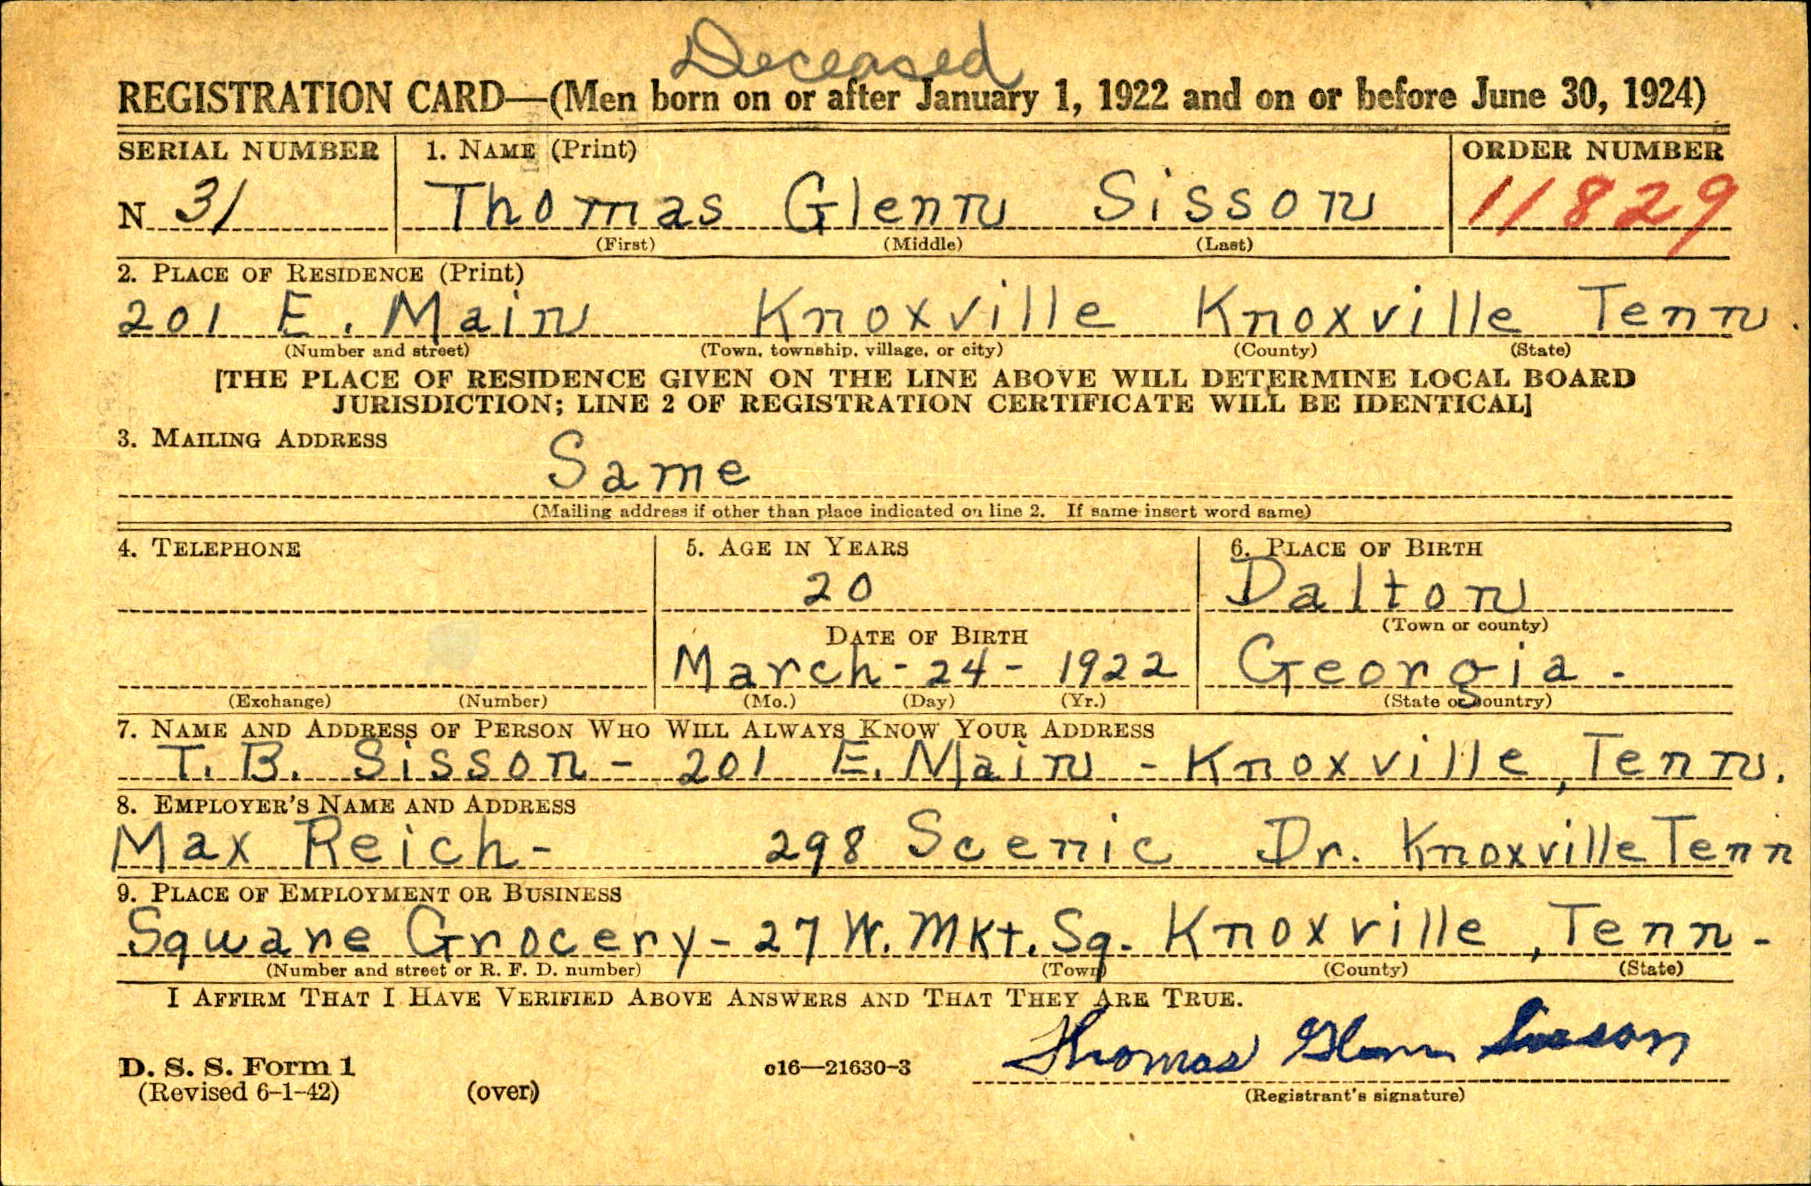 Deceased
REGISTRATION CARD—(Men born on or after January 1, 1922 and on or before June 30, 1924)
SERIAL NUMBER 1. NAME (Print) ORDER NUMBER
N 31 Thomas Glenn Sisson 11829
(First) (Middle) (Last)
2. PLACE OF RESIDENCE (Print)
201 E. Main Knoxville Knoxville Tenn.
(Number and street) (Town, township, village, or city) (County) (State)
[THE PLACE OF RESIDENCE GIVEN ON THE LINE ABOVE WILL DETERMINE LOCAL BOARD
JURISDICTION; LINE 2 OF REGISTRATION CERTIFICATE WILL BE IDENTICAL]
3. MAILING ADDRESS
Same
(Mailing address if other than place indicated on line 2. If same insert word same)
4. TELEPHONE 5. AGE IN YEARS 6. PLACE OF BIRTH
20 Dalton
(Town or county)
DATE OF BIRTH
March - 24 - 1922 Georgia -
(Exchange) (Number) (Mo.) (Day) (Yr.) (State or country)
7. NAME AND ADDRESS OF PERSON WHO WILL ALWAYS KNOW YOUR ADDRESS
T. B. Sisson - 201 E. Main - Knoxville, Tenn.
8. EMPLOYER'S NAME AND ADDRESS
Max Reich - 298 Scenic Dr. Knoxville Tenn
9. PLACE OF EMPLOYMENT OR BUSINESS
Square Grocery - 27 W. Mkt. Sq. Knoxville, Tenn -
(Number and street or R. F. D. number) (Town) (County) (State)
I AFFIRM THAT I HAVE VERIFIED ABOVE ANSWERS AND THAT THEY ARE TRUE.
Thomas Glenn Sisson
D. S. S. Form 1 c16—21630-3
(Revised 6-1-42) (over) (Registrant's signature)